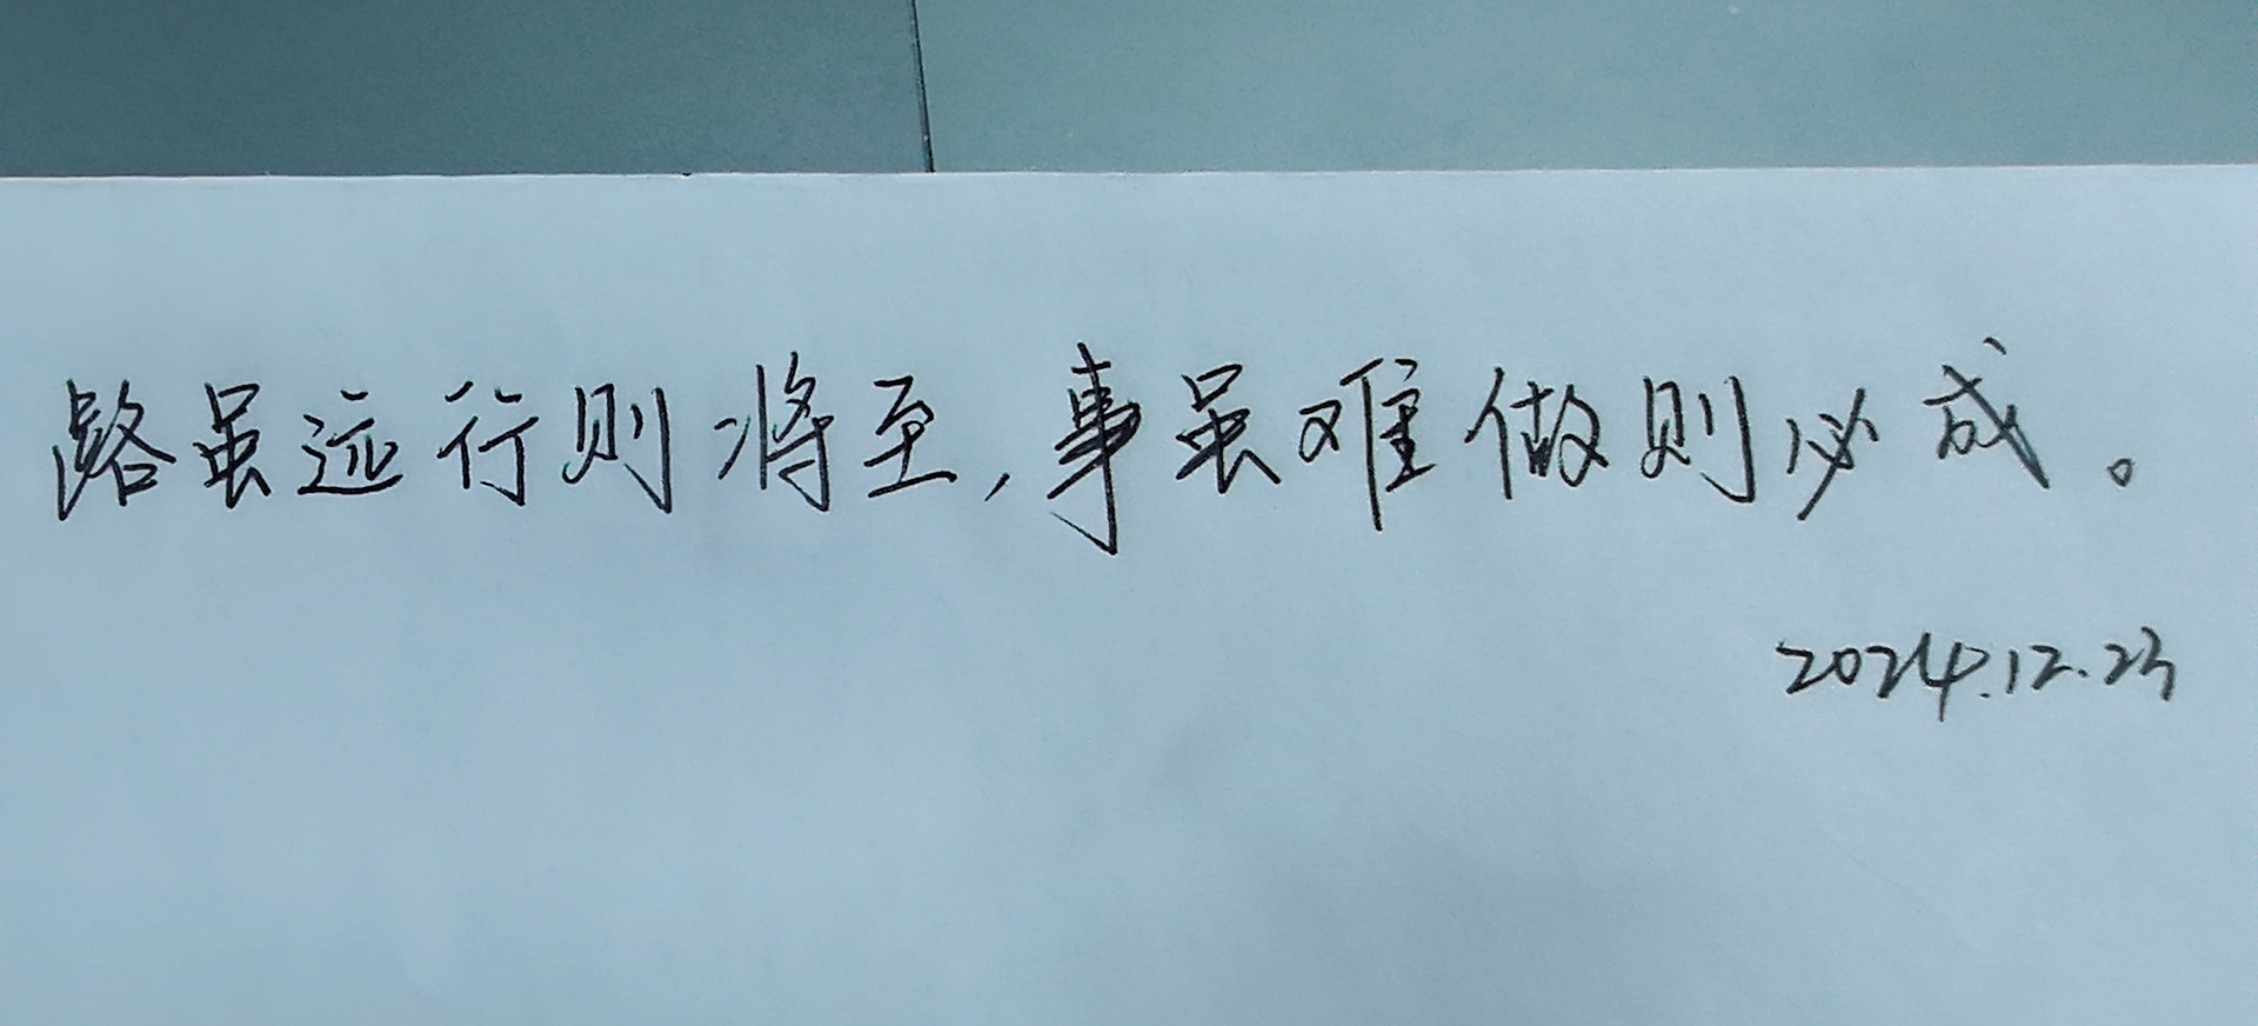 路虽远行则将至，事虽难做则必成。
2024.12.23